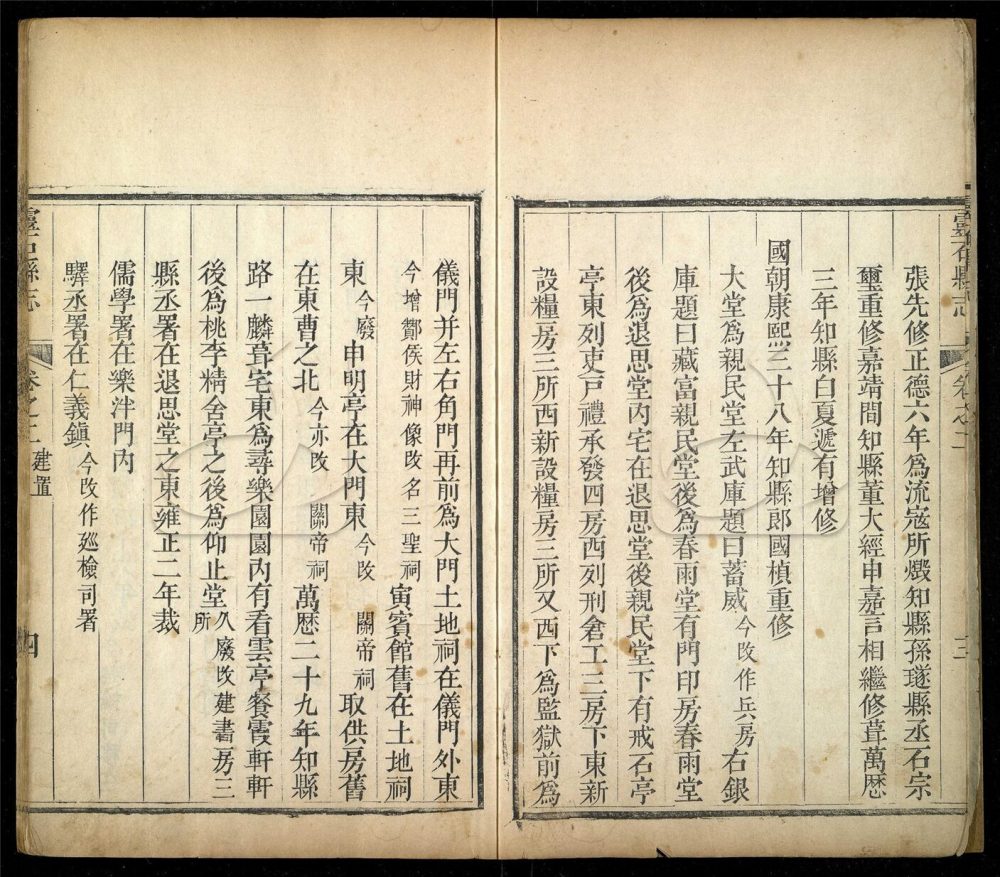 靈石縣志 卷之二 三
張先修正德六年為流寇所燬知縣孫璲縣丞石宗
璽重修嘉靖間知縣董大經申嘉言相繼修葺萬歷
三年知縣白夏遞有增修
國朝康熙三十八年知縣郎國楨重修
大堂為親民堂左武庫題曰蓄威今改作兵房右銀
庫題曰藏富親民堂後為春雨堂有門印房春雨堂
後為退思堂內宅在退思堂後親民堂下有戒石亭
亭東列吏戶禮承發四房西列刑倉工三房下東新
設糧房三所西新設糧房三所又西下為監獄前為
儀門并左右角門再前為大門土地祠在儀門外東
今增酇侯財神像改名三聖祠寅賓館舊在土地祠
東今廢申明亭在大門東今改關帝祠取供房舊
在東曹之北今亦改關帝祠萬歷二十九年知縣
路一麟葺宅東為尋樂園園內有看雲亭餐霞軒軒
後為桃李精舍亭之後為仰止堂久廢改建書房三所
縣丞署在退思堂之東雍正二年裁
儒學署在樂泮門內
驛丞署在仁義鎮今改作廵檢司署
靈石縣志 卷之二 建置 四